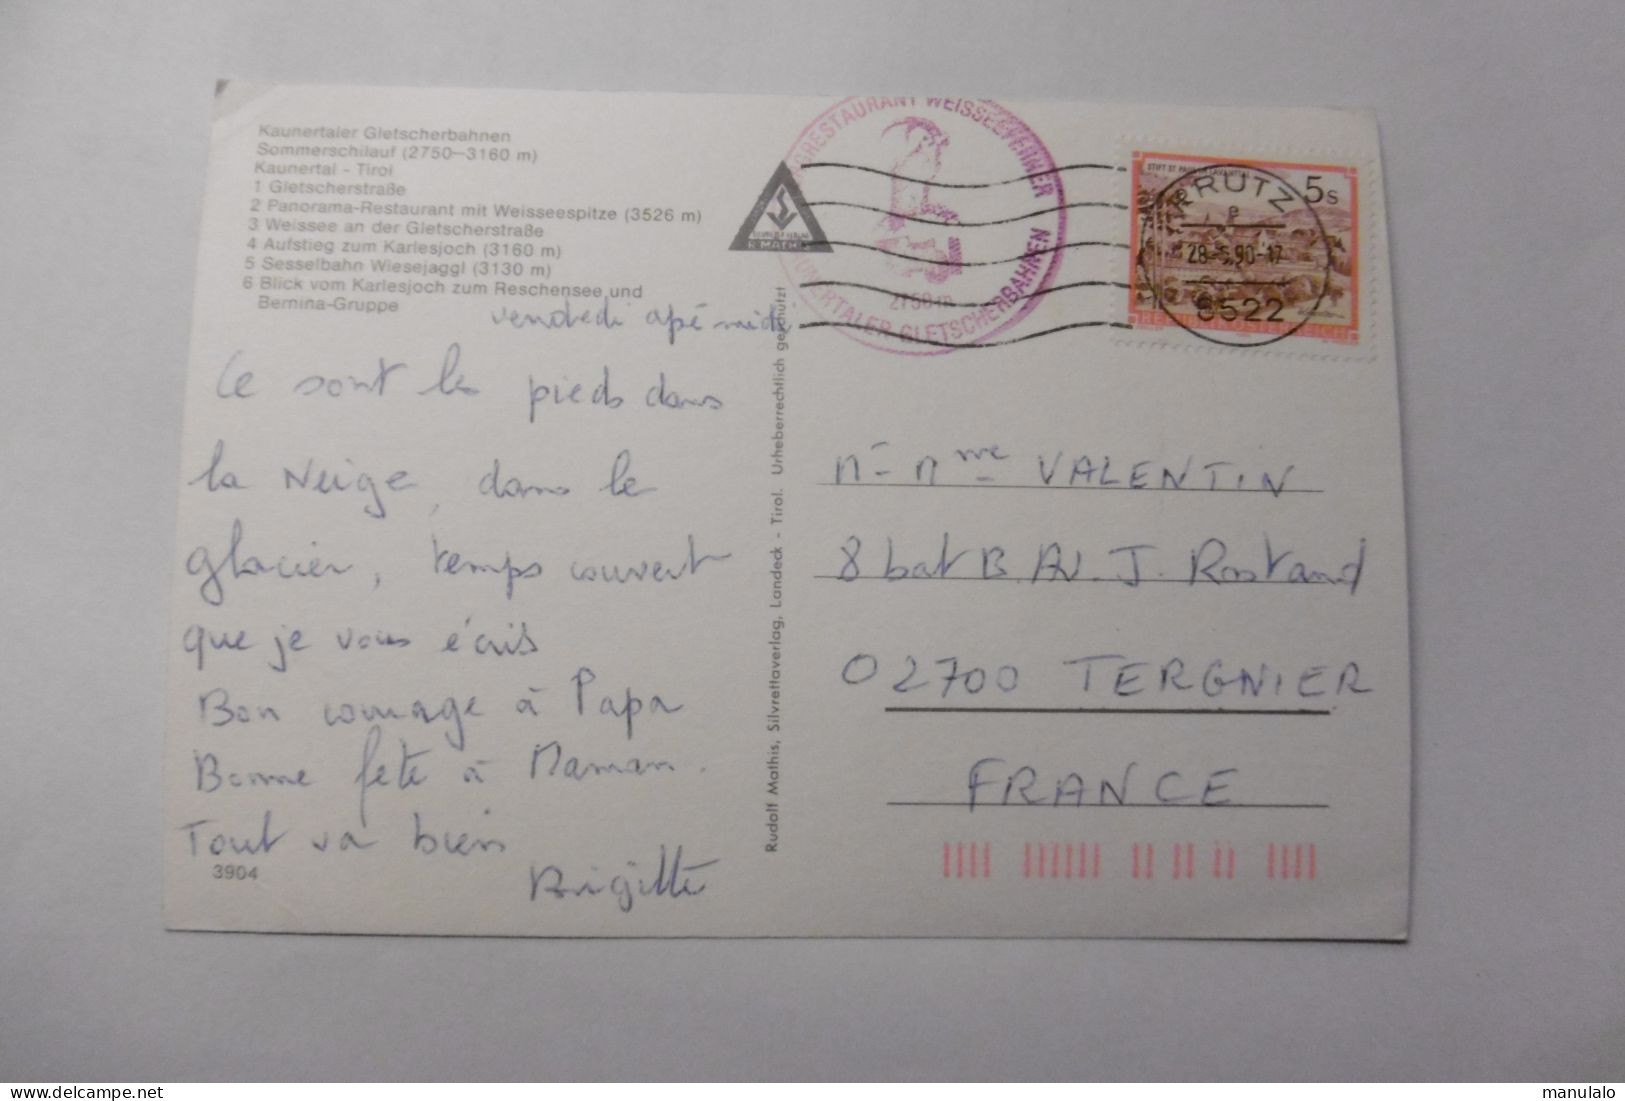 Kaunertaler Gletscherbahnen
Sommerschilauf (2750—3160 m)
Kaunertal - Tirol
1 Gletscherstraße
2 Panorama-Restaurant mit Weisseespitze (3526 m)
3 Weissee an der Gletscherstraße
4 Aufstieg zum Karlesjoch (3160 m)
5 Sesselbahn Wiesejaggl (3130 m)
6 Blick vom Karlesjoch zum Reschensee und
Bernina-Gruppe
vendredi apé midi
Ce sont les pieds dans
la Neige, dans le
glacier, temps couvert
que je vous écris
Bon courage à Papa
Bonne fête à Maman.
Tout va bien
Brigitte
3904
Rudolf Mathis, Silvrettaverlag, Landeck - Tirol. Urheberrechtlich geschützt
R. MATHIS
RESTAURANT WEISSEEFERNER
KAUNERTALER GLETSCHERBAHNEN
2750 m
STIFT ST. PAUL IM LAVANTTAL
5s
REPUBLIK ÖSTERREICH
PRUTZ
e
28.-5.90-17
6522
M - Mme VALENTIN
8 bat B. AV. J. Rostand
02700 TERGNIER
FRANCE
manulalo